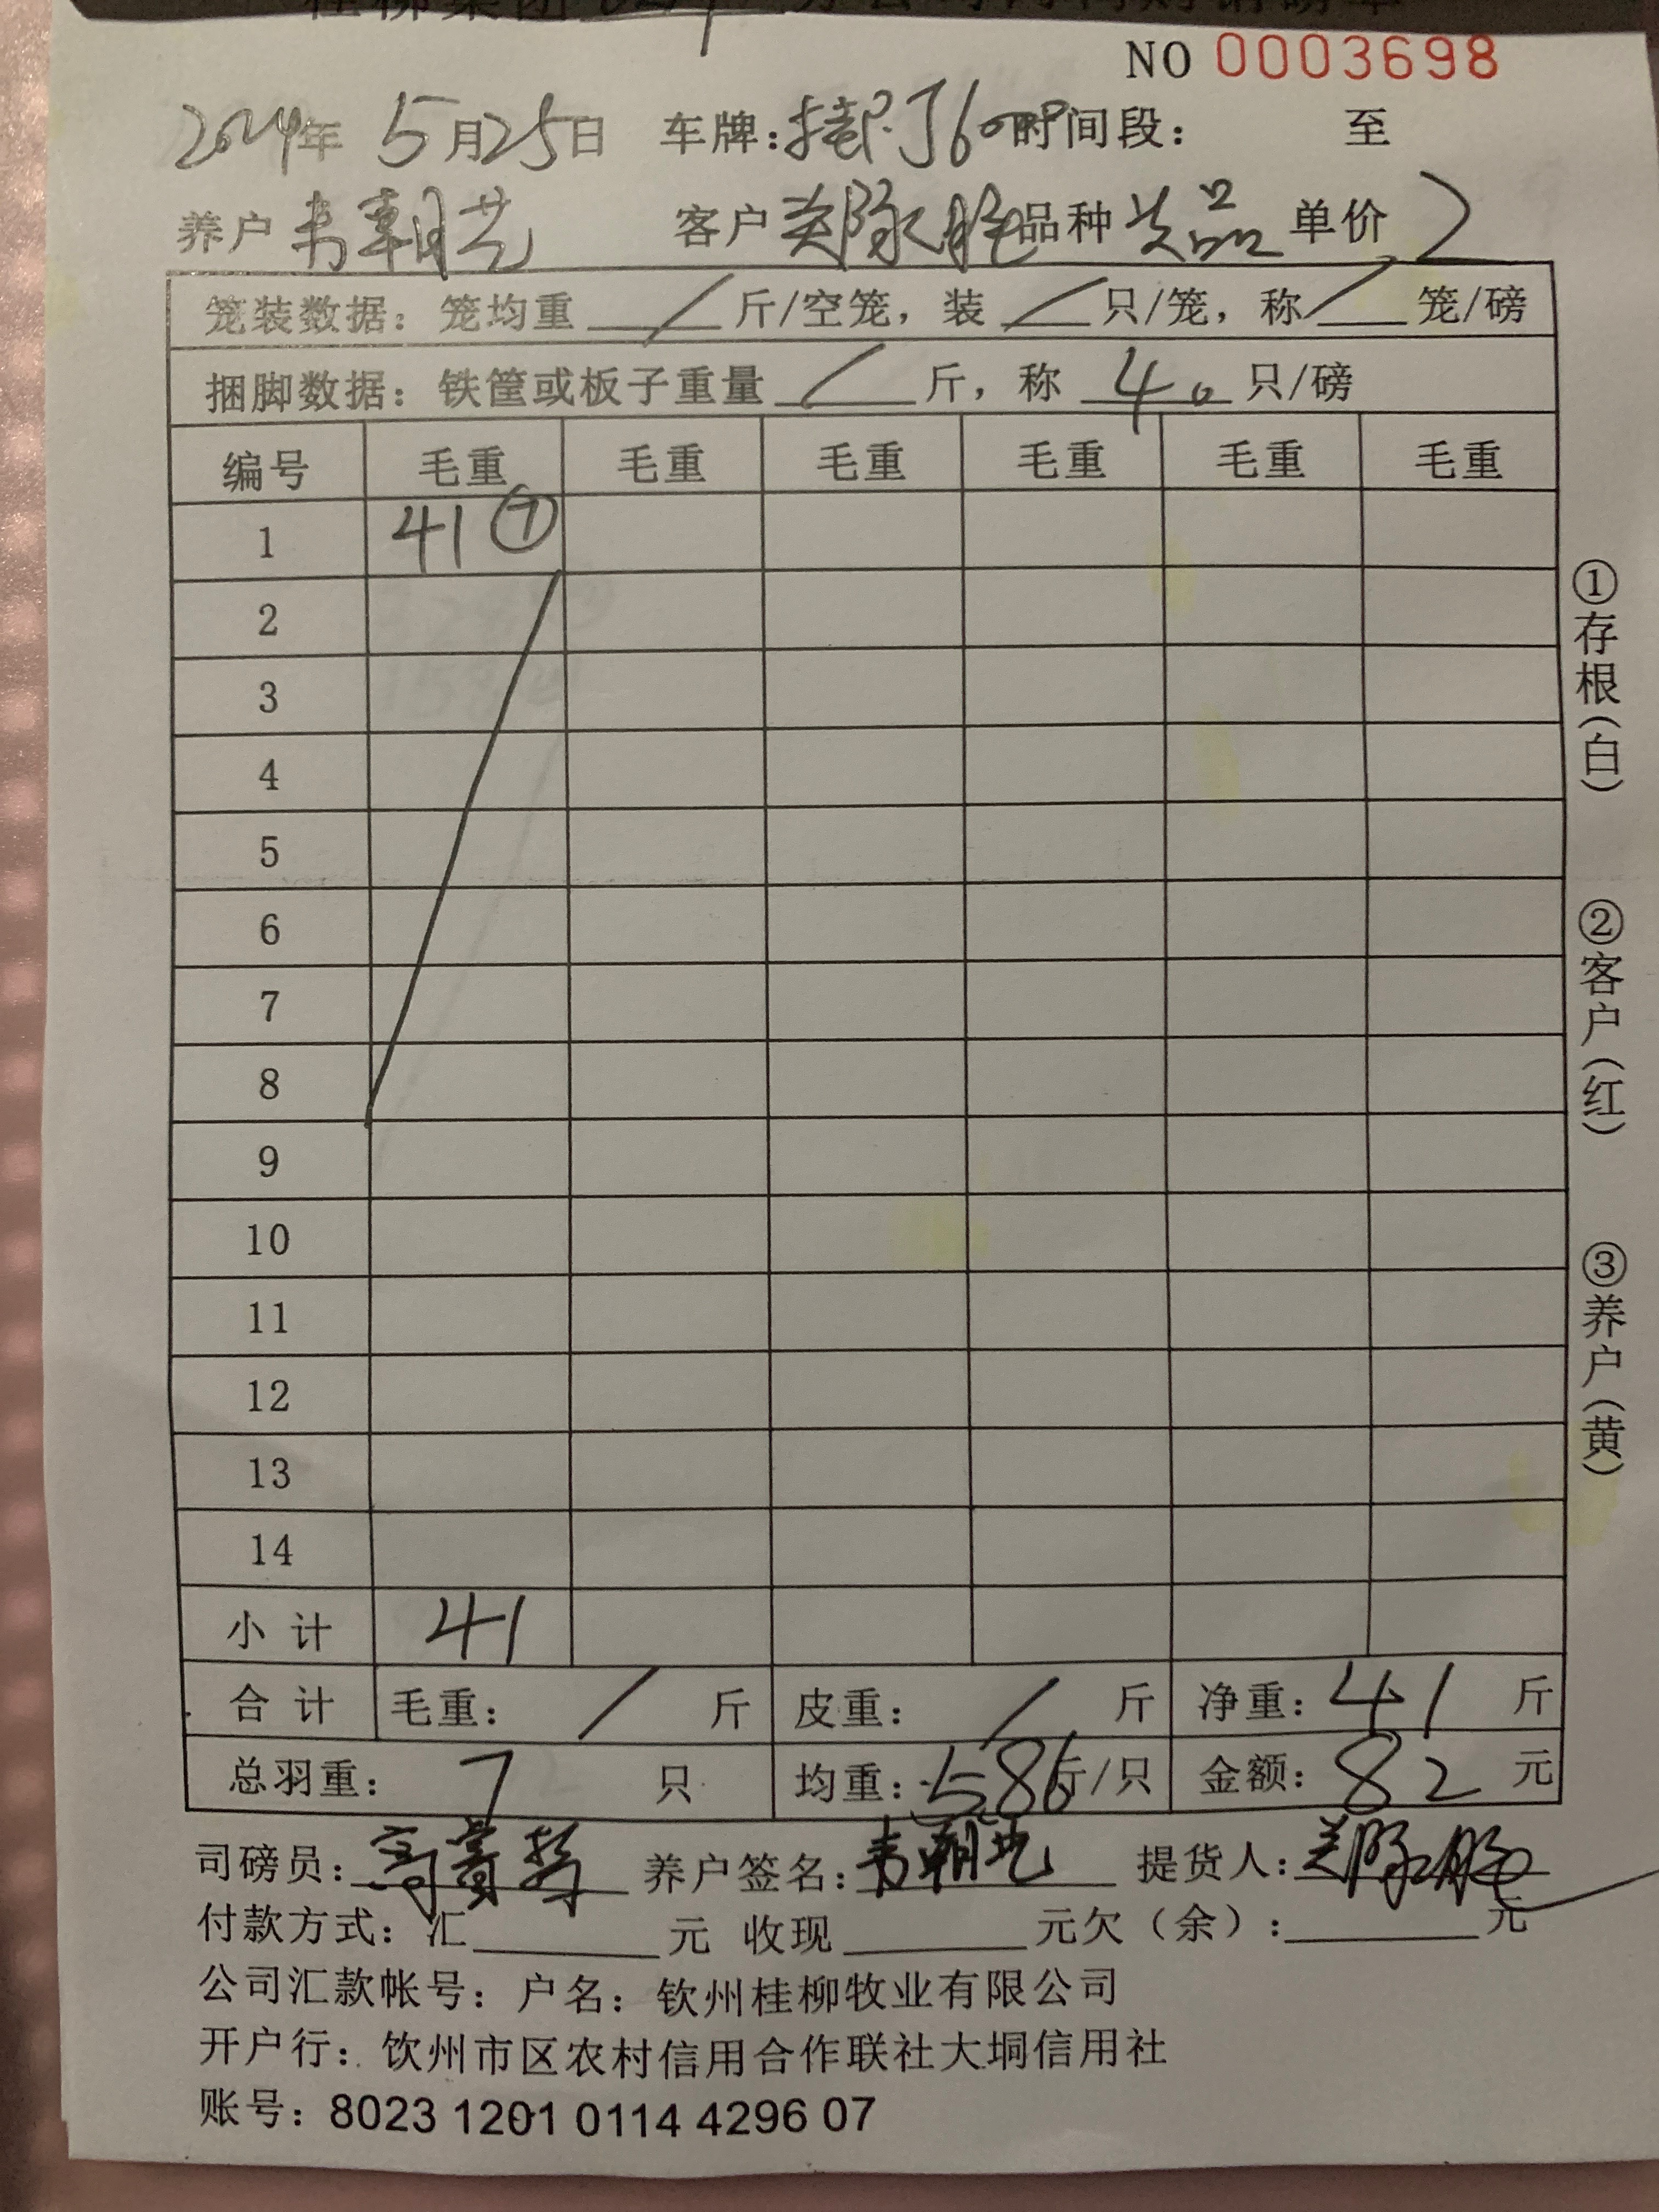 NO 0003698
2024年 5月25日 车牌: 时间段: 至
养户 韦朝艺 客户 品种 单价 2
笼装数据: 笼均重 / 斤/空笼, 装 / 只/笼, 称 / 笼/磅
捆脚数据: 铁筐或板子重量 / 斤, 称 40 只/磅
编号 毛重 毛重 毛重 毛重 毛重 毛重
1 41 ⑦
2
3
4
5
6
7
8
9
10
11
12
13
14
小计 41
合计 毛重: / 斤 皮重: / 斤 净重: 41 斤
总羽重: 7 只 均重: 5.86斤/只 金额: 82 元
司磅员: 养户签名: 韦朝艺 提货人:
付款方式: 汇 元 收现 元欠(余): 元
公司汇款帐号: 户名: 钦州桂柳牧业有限公司
开户行: 钦州市区农村信用合作联社大垌信用社
账号: 8023 1201 0114 4296 07
①存根(白)
②客户(红)
③养户(黄)